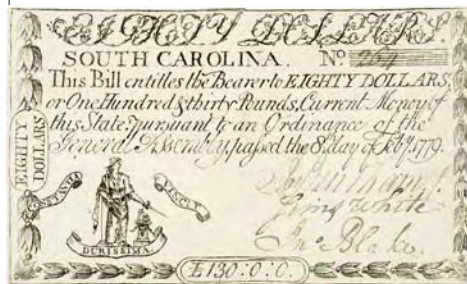 EIGHTY DOLLARS.
SOUTH CAROLINA. No. 264
This Bill entitles the Bearer to EIGHTY DOLLARS,
or One Hundred & thirty Pounds, Current Money of
this State, pursuant to an Ordinance of the
General Assembly, passed the 8. day of Feby. 1779.
EIGHTY
DOLLARS
VINCIT
DURISSIMA.
White
Jno. Blake.
£130:0:0.